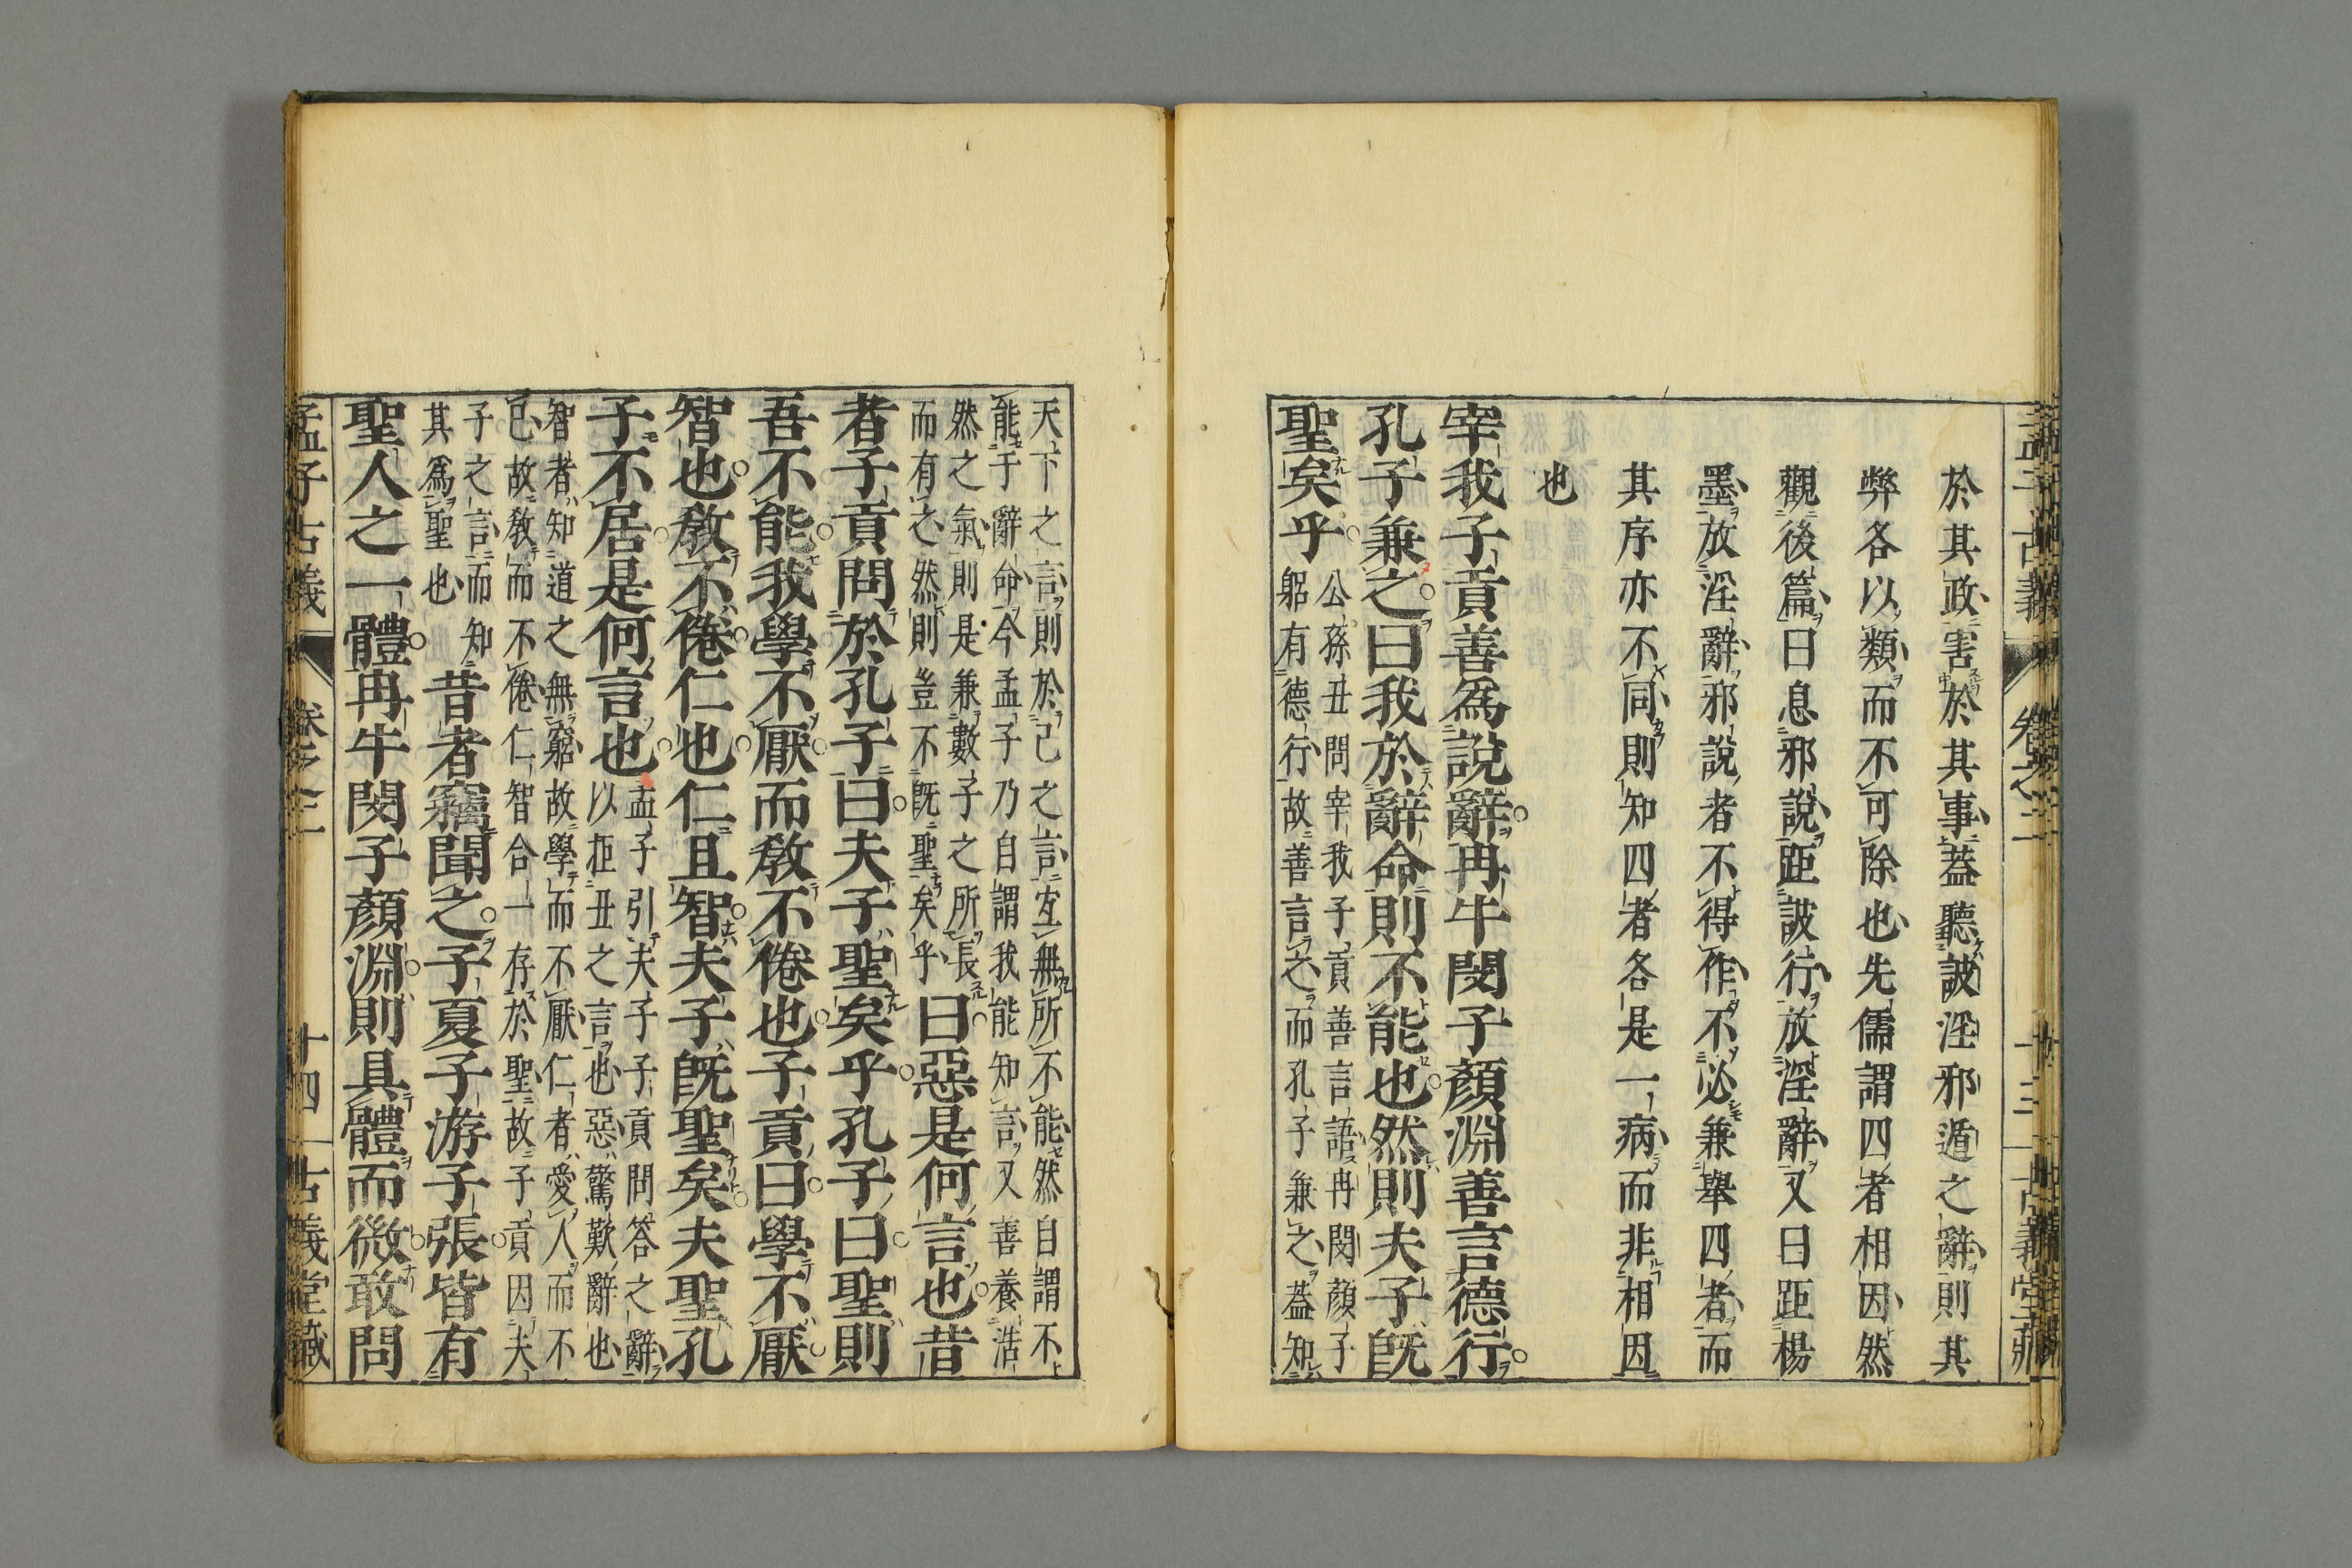 於其政害於其事蓋聽詖淫邪遁之辭則其
弊各以類而不可除也先儒謂四者相因然
觀後篇曰息邪說距詖行放淫辭又曰距楊
墨放淫辭邪說者不得作不必兼舉四者而
其序亦不同則知四者各是一病而非相因
也
宰我子貢善為說辭冉牛閔子顏淵善言德行
孔子兼之曰我於辭命則不能也然則夫子既
聖矣乎
公孫丑問宰我子貢善言語冉閔顏子
躬有德行故善言之而孔子兼之蓋知
天下之言則於己之言宜無所不能然自謂不
能于辭命今孟子乃自謂我能知言又善養浩
然之氣則是兼數子之所長
而有之然則豈不既聖矣乎
曰惡是何言也昔
者子貢問於孔子曰夫子聖矣乎孔子曰聖則
吾不能我學不厭而教不倦也子貢曰學不厭
智也教不倦仁也仁且智夫子既聖矣夫聖孔
子不居是何言也
孟子引夫子子貢問答之辭
以拒丑之言也惡驚歎辭也
智者知道之無窮故學而不厭仁者愛人而不
已故教而不倦仁智合一存於聖故子貢因夫
子之言而知
其為聖也
昔者竊聞之子夏子游子張皆有
聖人之一體冉牛閔子顏淵則具體而微敢問
孟子古義
卷之二
十四
古義堂藏